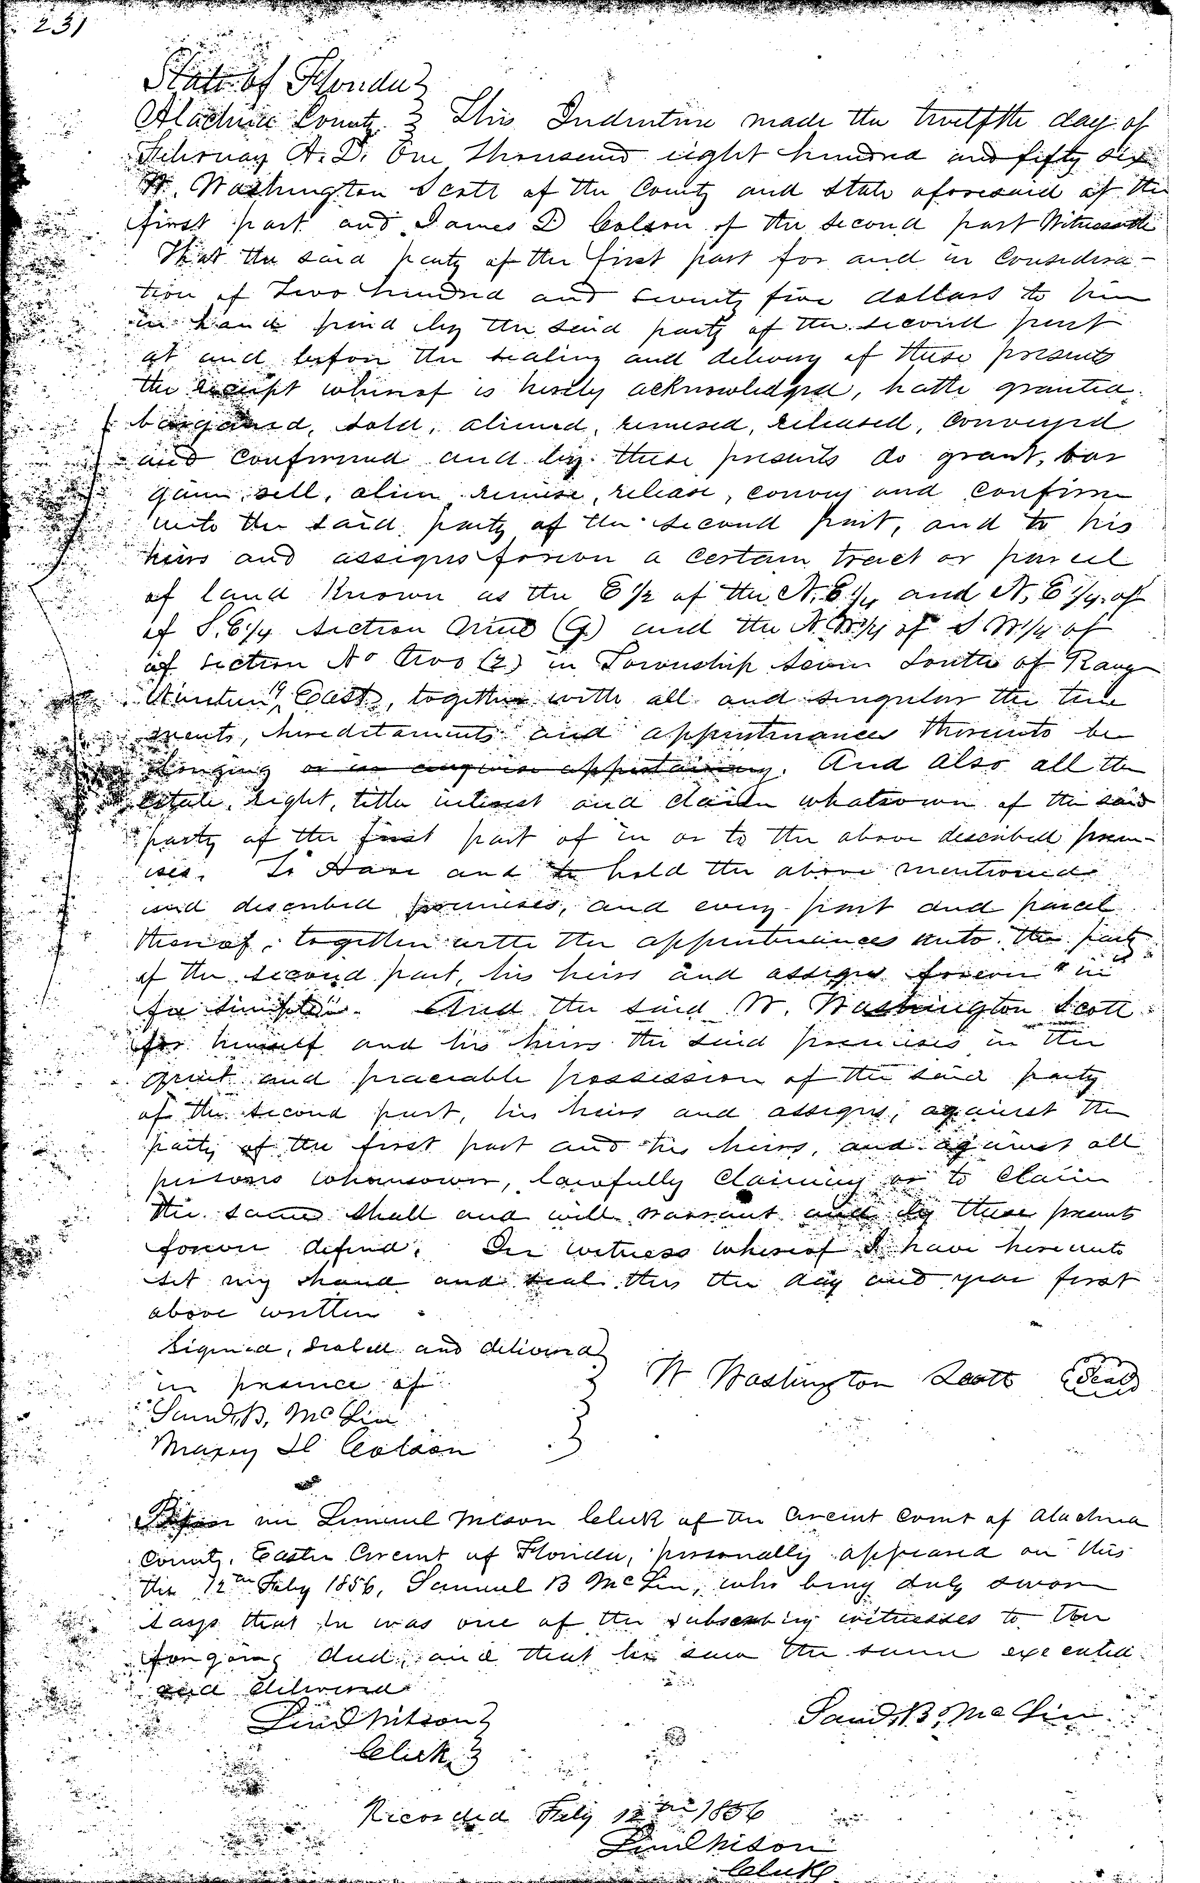 231
State of Florida }
Alachua County } This Indenture made the twelfth day of
February A.D. One thousand eight hundred and fifty six
W. Washington Scott of the County and State aforesaid of the
first part and James D Colson of the second part Witnesseth
That the said party of the first part for and in considera-
tion of Two hundred and seventy five dollars to him
in hand paid by the said party of the second part
at and before the sealing and delivery of these presents
the receipt whereof is hereby acknowledged, hath granted,
bargained, sold, aliened, remised, released, conveyed
and confirmed and by these presents do grant, bar
gain, sell, alien remise, release, convey and confirm
unto the said party of the second part, and to his
heirs and assigns forever a certain tract or parcel
of land known as the E 1/2 of the N.E 1/4 and N,E 1/4 of
of S.E 1/4 Section Nine (9) and the N.W 1/4 of S W 1/4 of
of section No two (2) in Township Seven South of Range
Nineteen 19 East, together with all and singular the tene
ments, hereditaments and appurtenances thereunto be
longing or in anywise appertaining. And also all the
estate, right, title interest and claim whatsoever of the said
party of the first part of in or to the above described prem-
ises. To Have and to hold the above mentioned
and described premises, and every part and parcel
thereof, together with the appurtenances unto the party
of the second part, his heirs and assigns forever "in
fee simple". And the said W. Washington Scott
for himself and his heirs the said premises in the
quiet and peaceable possession of the said party
of the second part, his heirs and assigns, against the
party of the first part and his heirs, and against all
persons whomsoever, lawfully claiming or to claim
the same shall and will warrant and by these presents
forever defend. In witness whereof I have hereunto
set my hand and seal this the day and year first
above written.
Signed, sealed and delivered }
in presence of } W Washington Scott (Seal)
Saml. B. McLin
Maxey D Colson }
Before me Lemuel Wilson Clerk of the Circuit Court of Alachua
County, Eastern Circuit of Florida, personally appeared on this
the 12th Feby 1856, Samuel B McLin, who being duly sworn
says that he was one of the subscribing witnesses to the
foregoing deed, and that he saw the same executed
and delivered
Leml Wilson } Saml. B. McLin
Clerk }
Recorded Feby 12th 1856
Leml Wilson
Clerk